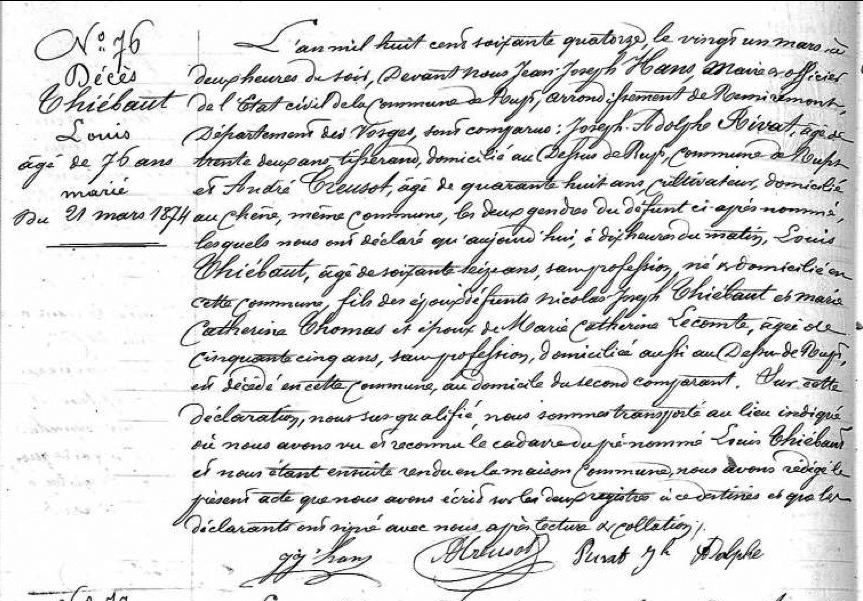 N° 76
Décès
Thiébaut
Louis
âgé de 76 ans
marié
Du 21 mars 1874
L'an mil huit cent soixante quatorze, le vingt un mars à
deux heures du soir, Devant nous Jean Joseph Hans, Maire et officier
de l'Etat civil de la Commune de Rupt, arrondissement de Remiremont,
Département des Vosges, sont comparus : Joseph Adolphe Pivat, âgé de
trente deux ans tisserand, domicilié au Dessus de Rupt, Commune de Rupt
et André Creusot, âgé de quarante huit ans, cultivateur, domicilié
au chêne, même commune, les deux gendres du défunt ci après nommé,
lesquels nous ont déclaré qu'aujourd'hui, à dix heures du matin, Louis
Thiébaut, âgé de soixante seize ans, sans profession, né & domicilié en
cette commune, fils des époux défunts Nicolas Joseph Thiébaut et marie
Catherine Thomas et époux de Marie Catherine Lecomte, âgée de
cinquante cinq ans, sans profession, domiciliée aussi au Dessus de Rupt,
est décédé en cette Commune, au domicile du second comparant. Sur cette
déclaration, nous sus qualifié, nous sommes transporté au lieu indiqué
où nous avons vu et reconnu le cadavre du pé nommé Louis Thiébaut
et nous étant ensuite rendu en la maison Commune, nous avons rédigé le
présent acte que nous avons écrit sur les deux registres à ce destinés et que les
déclarants ont signé avec nous après lecture & collation /.
JJ Hans ACreusot Jh Adolphe